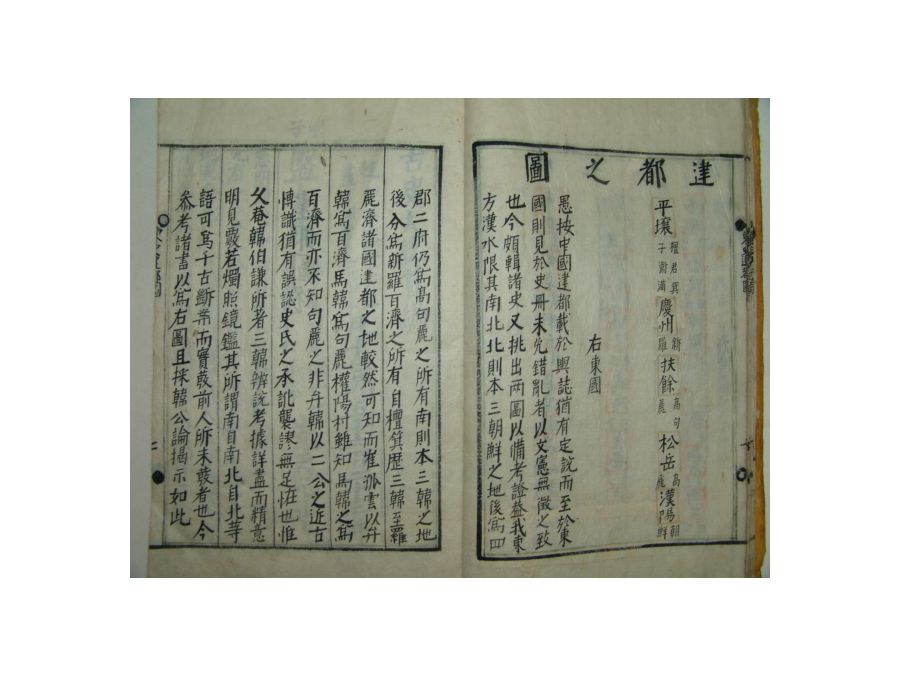 建都之圖
平壤 檀君箕子衛滿 慶州 新羅 扶餘 高句麗 松岳 高麗 漢陽 朝鮮
右東國
愚按中國建都載於輿誌猶有定說而至於東
國則見於史冊未免錯亂者以文憲無徵之致
也今頗輯諸史又挑出兩圖以備考證盖我東
方漢水限其南北北則本三朝鮮之地後爲四
郡二府仍爲高句麗之所有南則本三韓之地
後分爲新羅百濟之所有自檀箕歷三韓至羅
麗濟諸國建都之地較然可知而崔孤雲以弁
韓爲百濟馬韓爲句麗權陽村雖知馬韓之爲
百濟而亦不知句麗之非弁韓以二公之近古
博識猶有誤認史氏之承訛襲謬無足恠也惟
久菴韓伯謙所著三韓辨說考據詳盡而精意
明見覈若燭照鏡鑑其所謂南自南北自北等
語可爲千古斷案而實發前人所未發者也今
參考諸書以爲右圖且採韓公論揭示如此